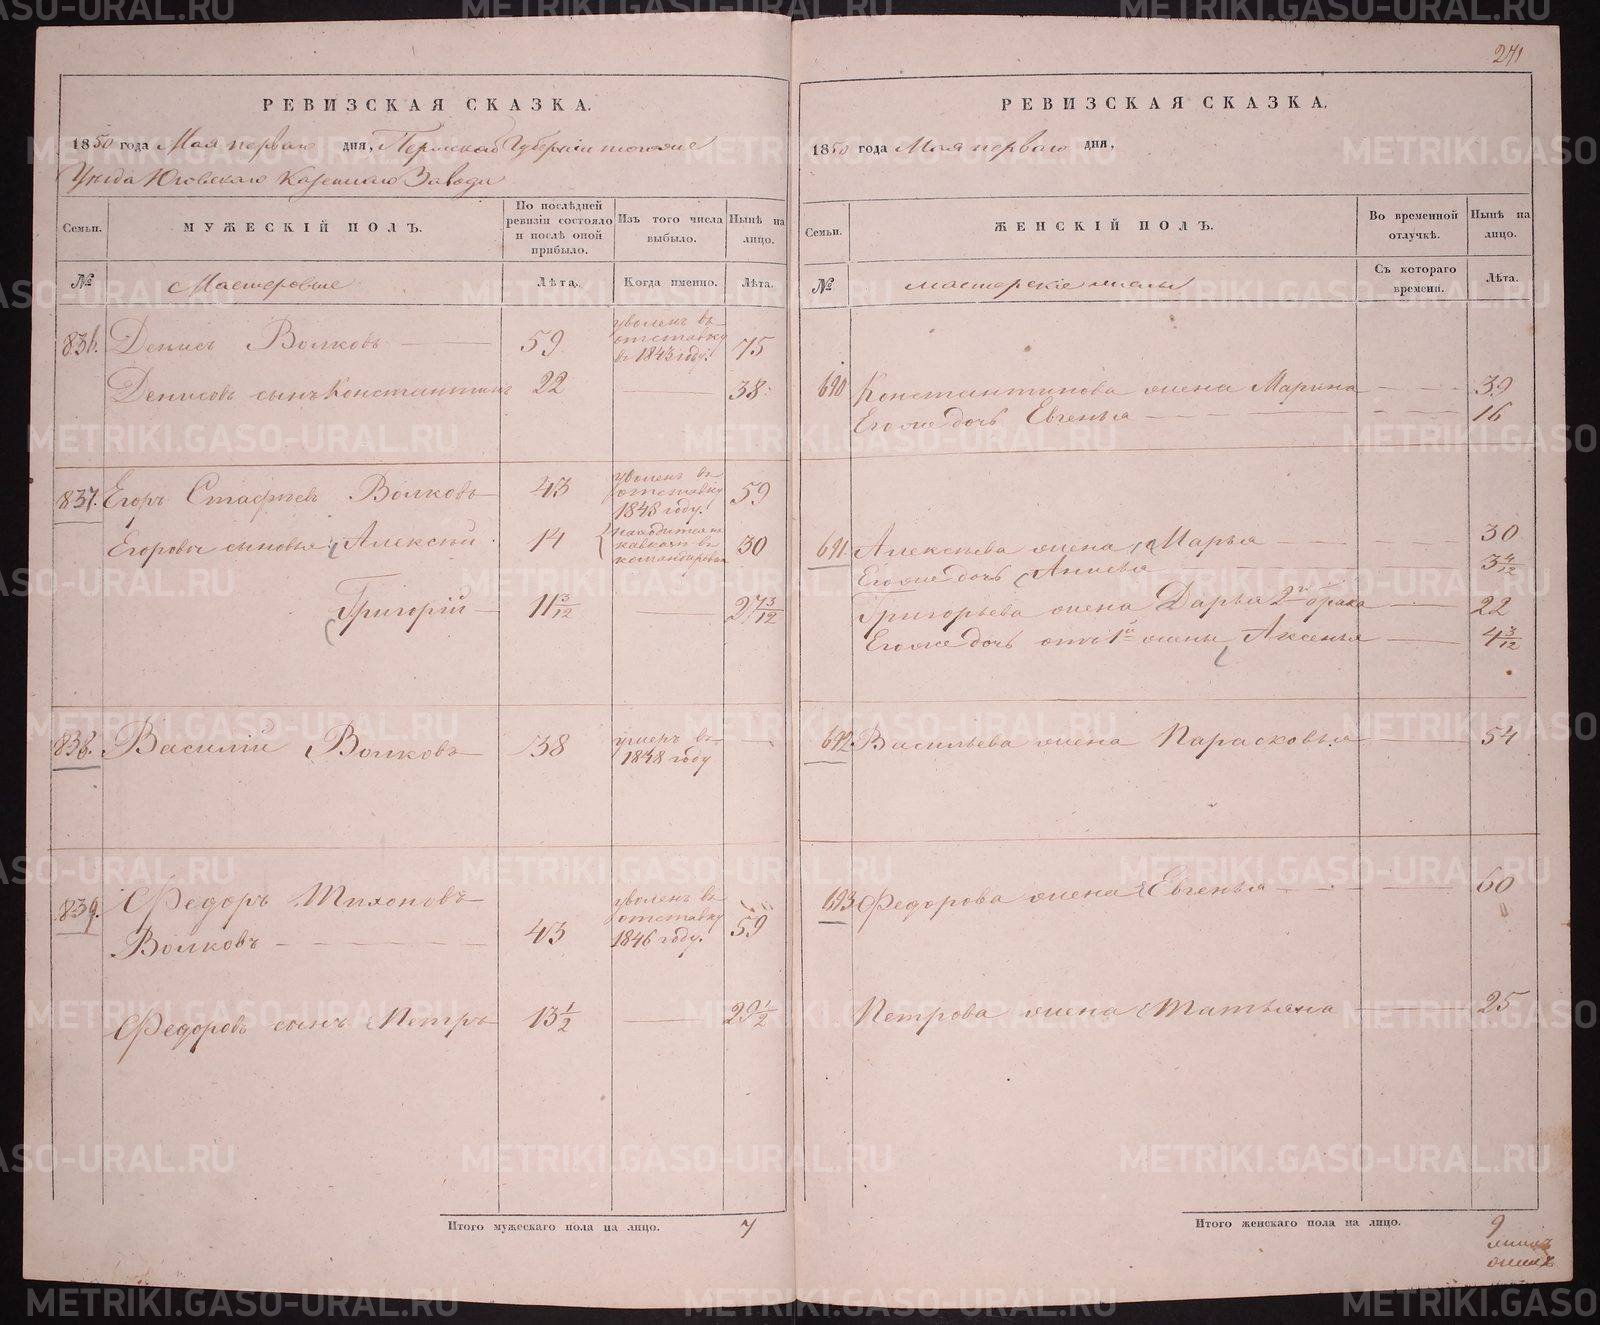 271
РЕВИЗСКАЯ СКАЗКА.
1850 года Мая перваго дня, Пермской Губерніи тогоже
Уѣзда Юговскаго Казеннаго Завода
Семьи.
МУЖЕСКІЙ ПОЛЪ.
По послѣдней ревизіи состояло и послѣ оной прибыло.
Изъ того числа выбыло.
Нынѣ на лицо.
№
Мастеровые
Лѣта.
Когда именно.
Лѣта.
836. Денисъ Волковъ 59 уволенъ въ отставку въ 1843 году. 75
Денисовъ сынъ Константинъ 22 38.
837. Егоръ Стафѣев Волковъ 43 уволенъ въ отставку 1848 году. 59
Егоровы сыновья: Алексѣй 14 находится на кавказѣ въ командировкѣ 30
Григорій 11 3/12 27 3/12
838. Василій Волковъ 38 умеръ въ 1848 году
839. Федоръ Тихоновъ
Волковъ 43 уволенъ въ отставку 1846 году. 59
Федоровъ сынъ Петръ 13 1/2 29 1/2
Итого мужескаго пола на лицо. 7
РЕВИЗСКАЯ СКАЗКА.
1850 года Мая перваго дня,
Семьи.
ЖЕНСКІЙ ПОЛЪ.
Во временной отлучкѣ.
Нынѣ на лицо.
№
мастерскіе жены
Съ котораго времени.
Лѣта.
690 Константинова жена Марина 39
Егоже дочь Евгенья 16
691 Алексѣева жена Марья 30
Егоже дочь Анисья 3 4/12
Григорьева жена Дарья 2го брака 22
Егоже дочь отъ 1й жены Аксенья 4 3/12
692 Васильева жена Парасковья 54
693 Федорова жена Евгенья 60
Петрова жена Татьяна 25
Итого женскаго пола на лицо. 9